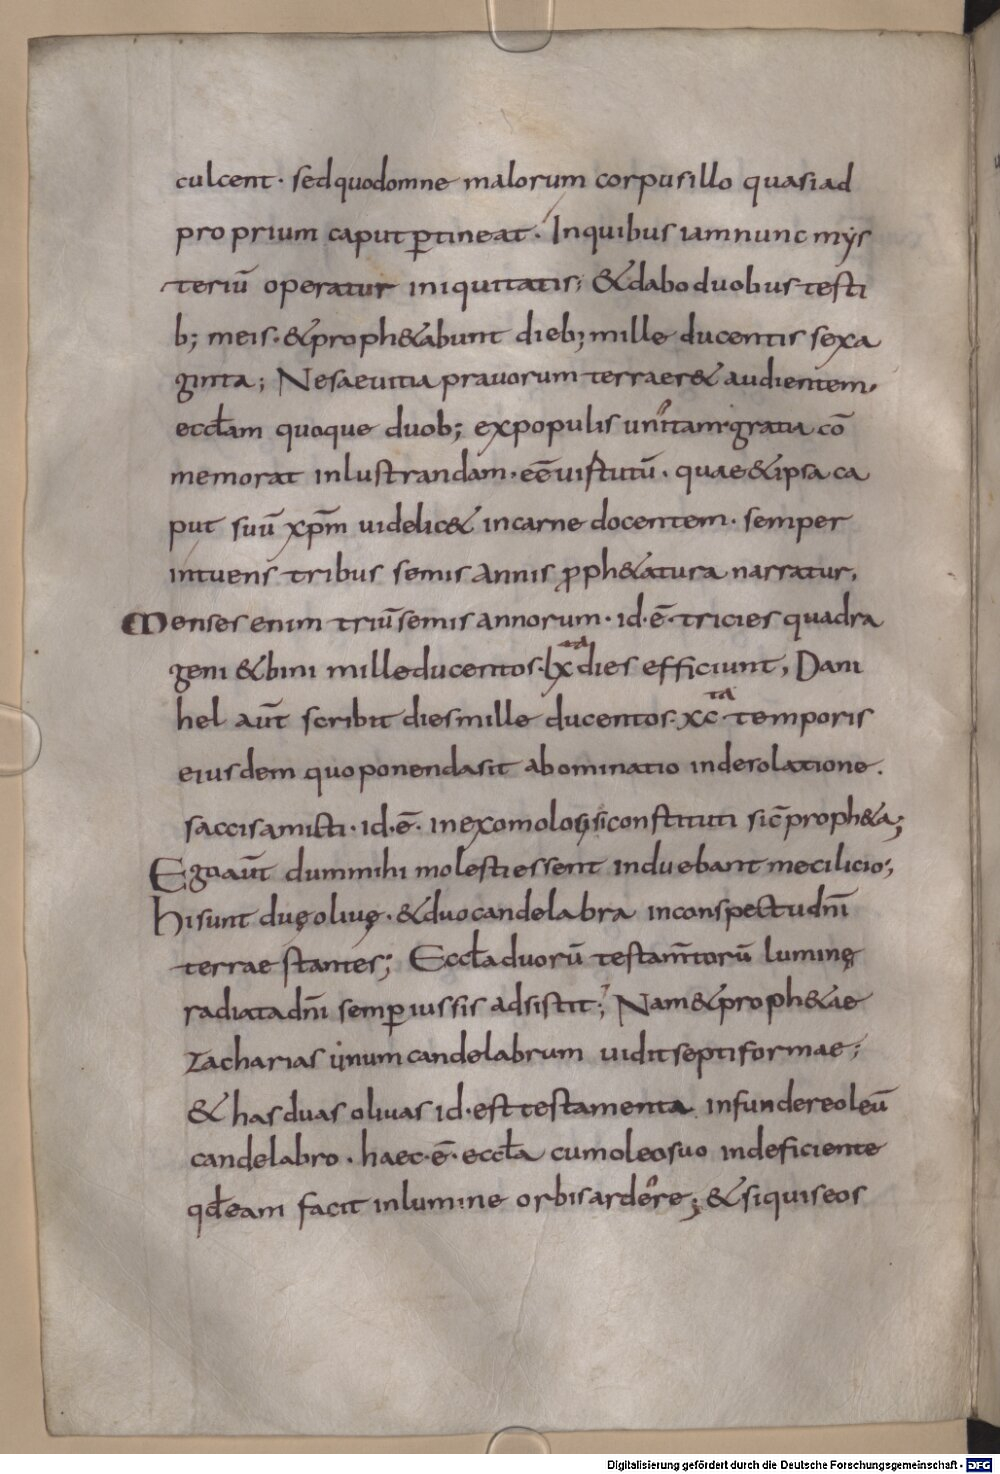 culcent· sed quod omne malorum corpus illo quasi ad
proprium caput ꝑtineat· In quibus iam nunc mẏs
teriū operatur iniquitatis; & dabo duobus testi
b; meis· & proph&abunt dieb; mille ducentis sexa
ginta; Ne saevitia pravorum terrear& audientem,
eccƚam quoque duob; ex populis unitam gratia cō
memorat inlustrandam· eē uirtutū· quae & ipsa ca
put suū xp̄m uidelic& in carne docentem· semper
intuens tribus semis annis ꝓph&atura narratur,
Menses enim triū semis annorum· id·ē· tricies quadra
geni & bini mille ducentos· lx ta dies efficiunt, Dani
hel aūt scribit dies mille ducentos· xc ta temporis
eiusdem quo ponenda sit abominatio in desolatione.
saccis amicti· id·ē· in exomolosi constituti sic̄ proph&a;
Ego aūt dum mihi molesti essent induebant me cilicio;
Hi sunt duę oliuę· & duo candelabra in conspectu dn̄i
terrae stantes; Eccƚa duorū testam̄torū luminę
radiata dn̄i semꝑ iussis adsistit; Nam & proph&ae
Zacharias unum candelabrum uidit septiformae;
& has duas oliuas id·est testamenta infundere oleū
candelabro· haec·ē· eccƚa cum oleo suo indeficiente
qđ eam facit in lumine orbis ardere; & si quis eos
Digitalisierung gefördert durch die Deutsche Forschungsgemeinschaft - DFG